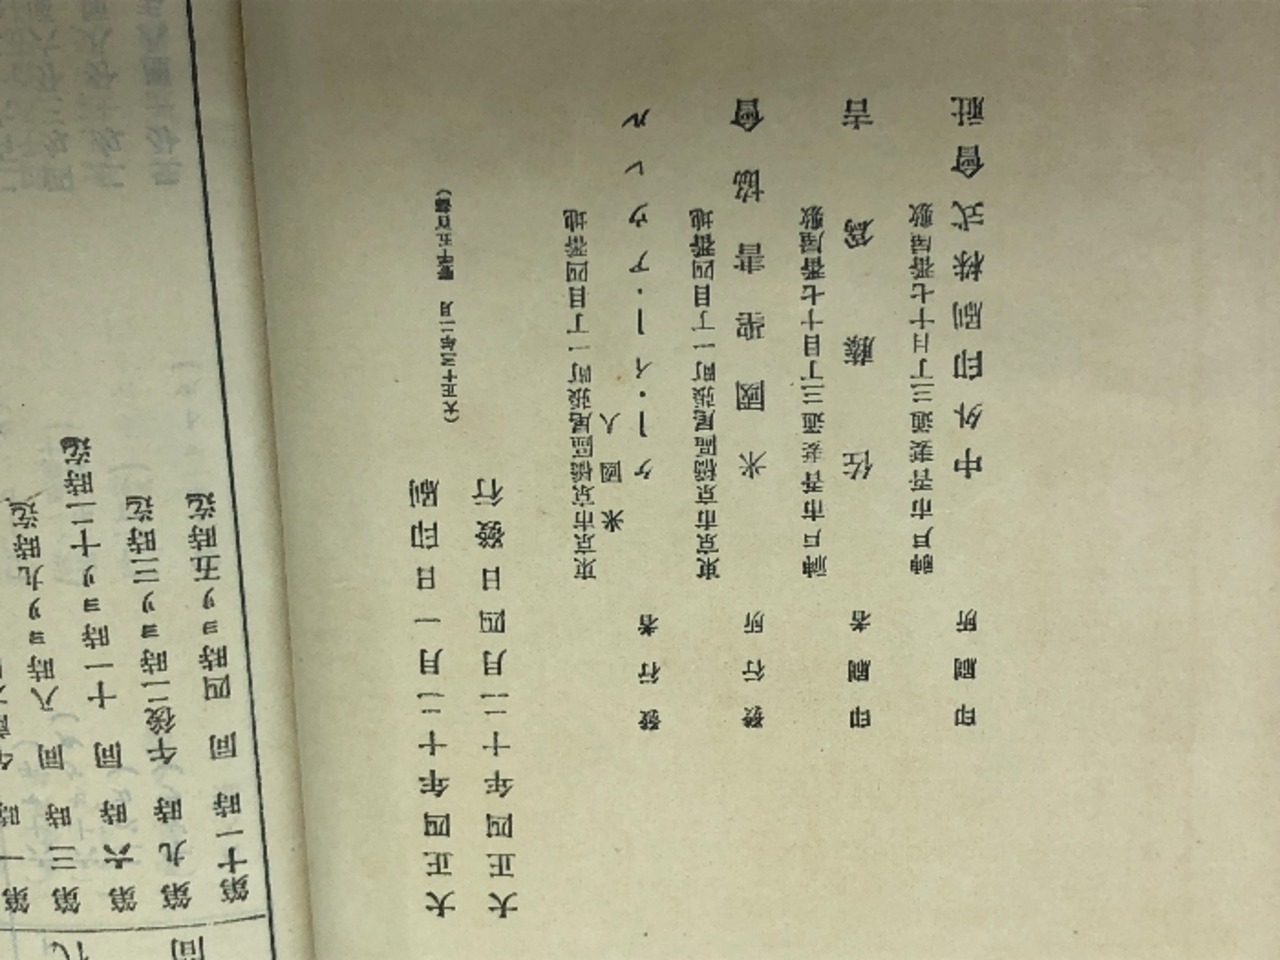 代間
第一時
第三時 同 八時ヨリ九時迄
第六時 同 十一時ヨリ十二時迄
第九時 午後二時ヨリ三時迄
第十一時 同 四時ヨリ五時迄
大正四年十二月一日印刷
(大正十三年二月 壹千五百部)
大正四年十二月四日發行
東京市京橋區尾張町一丁目四番地
米國人
發行者 ケー・イー・アウレル
東京市京橋區尾張町一丁目四番地
發行所 米國聖書協會
神戸市吾妻通三丁目十七番屋敷
印刷者 佐藤爲吉
神戸市吾妻通三丁目十七番屋敷
印刷所 中外印刷株式會社